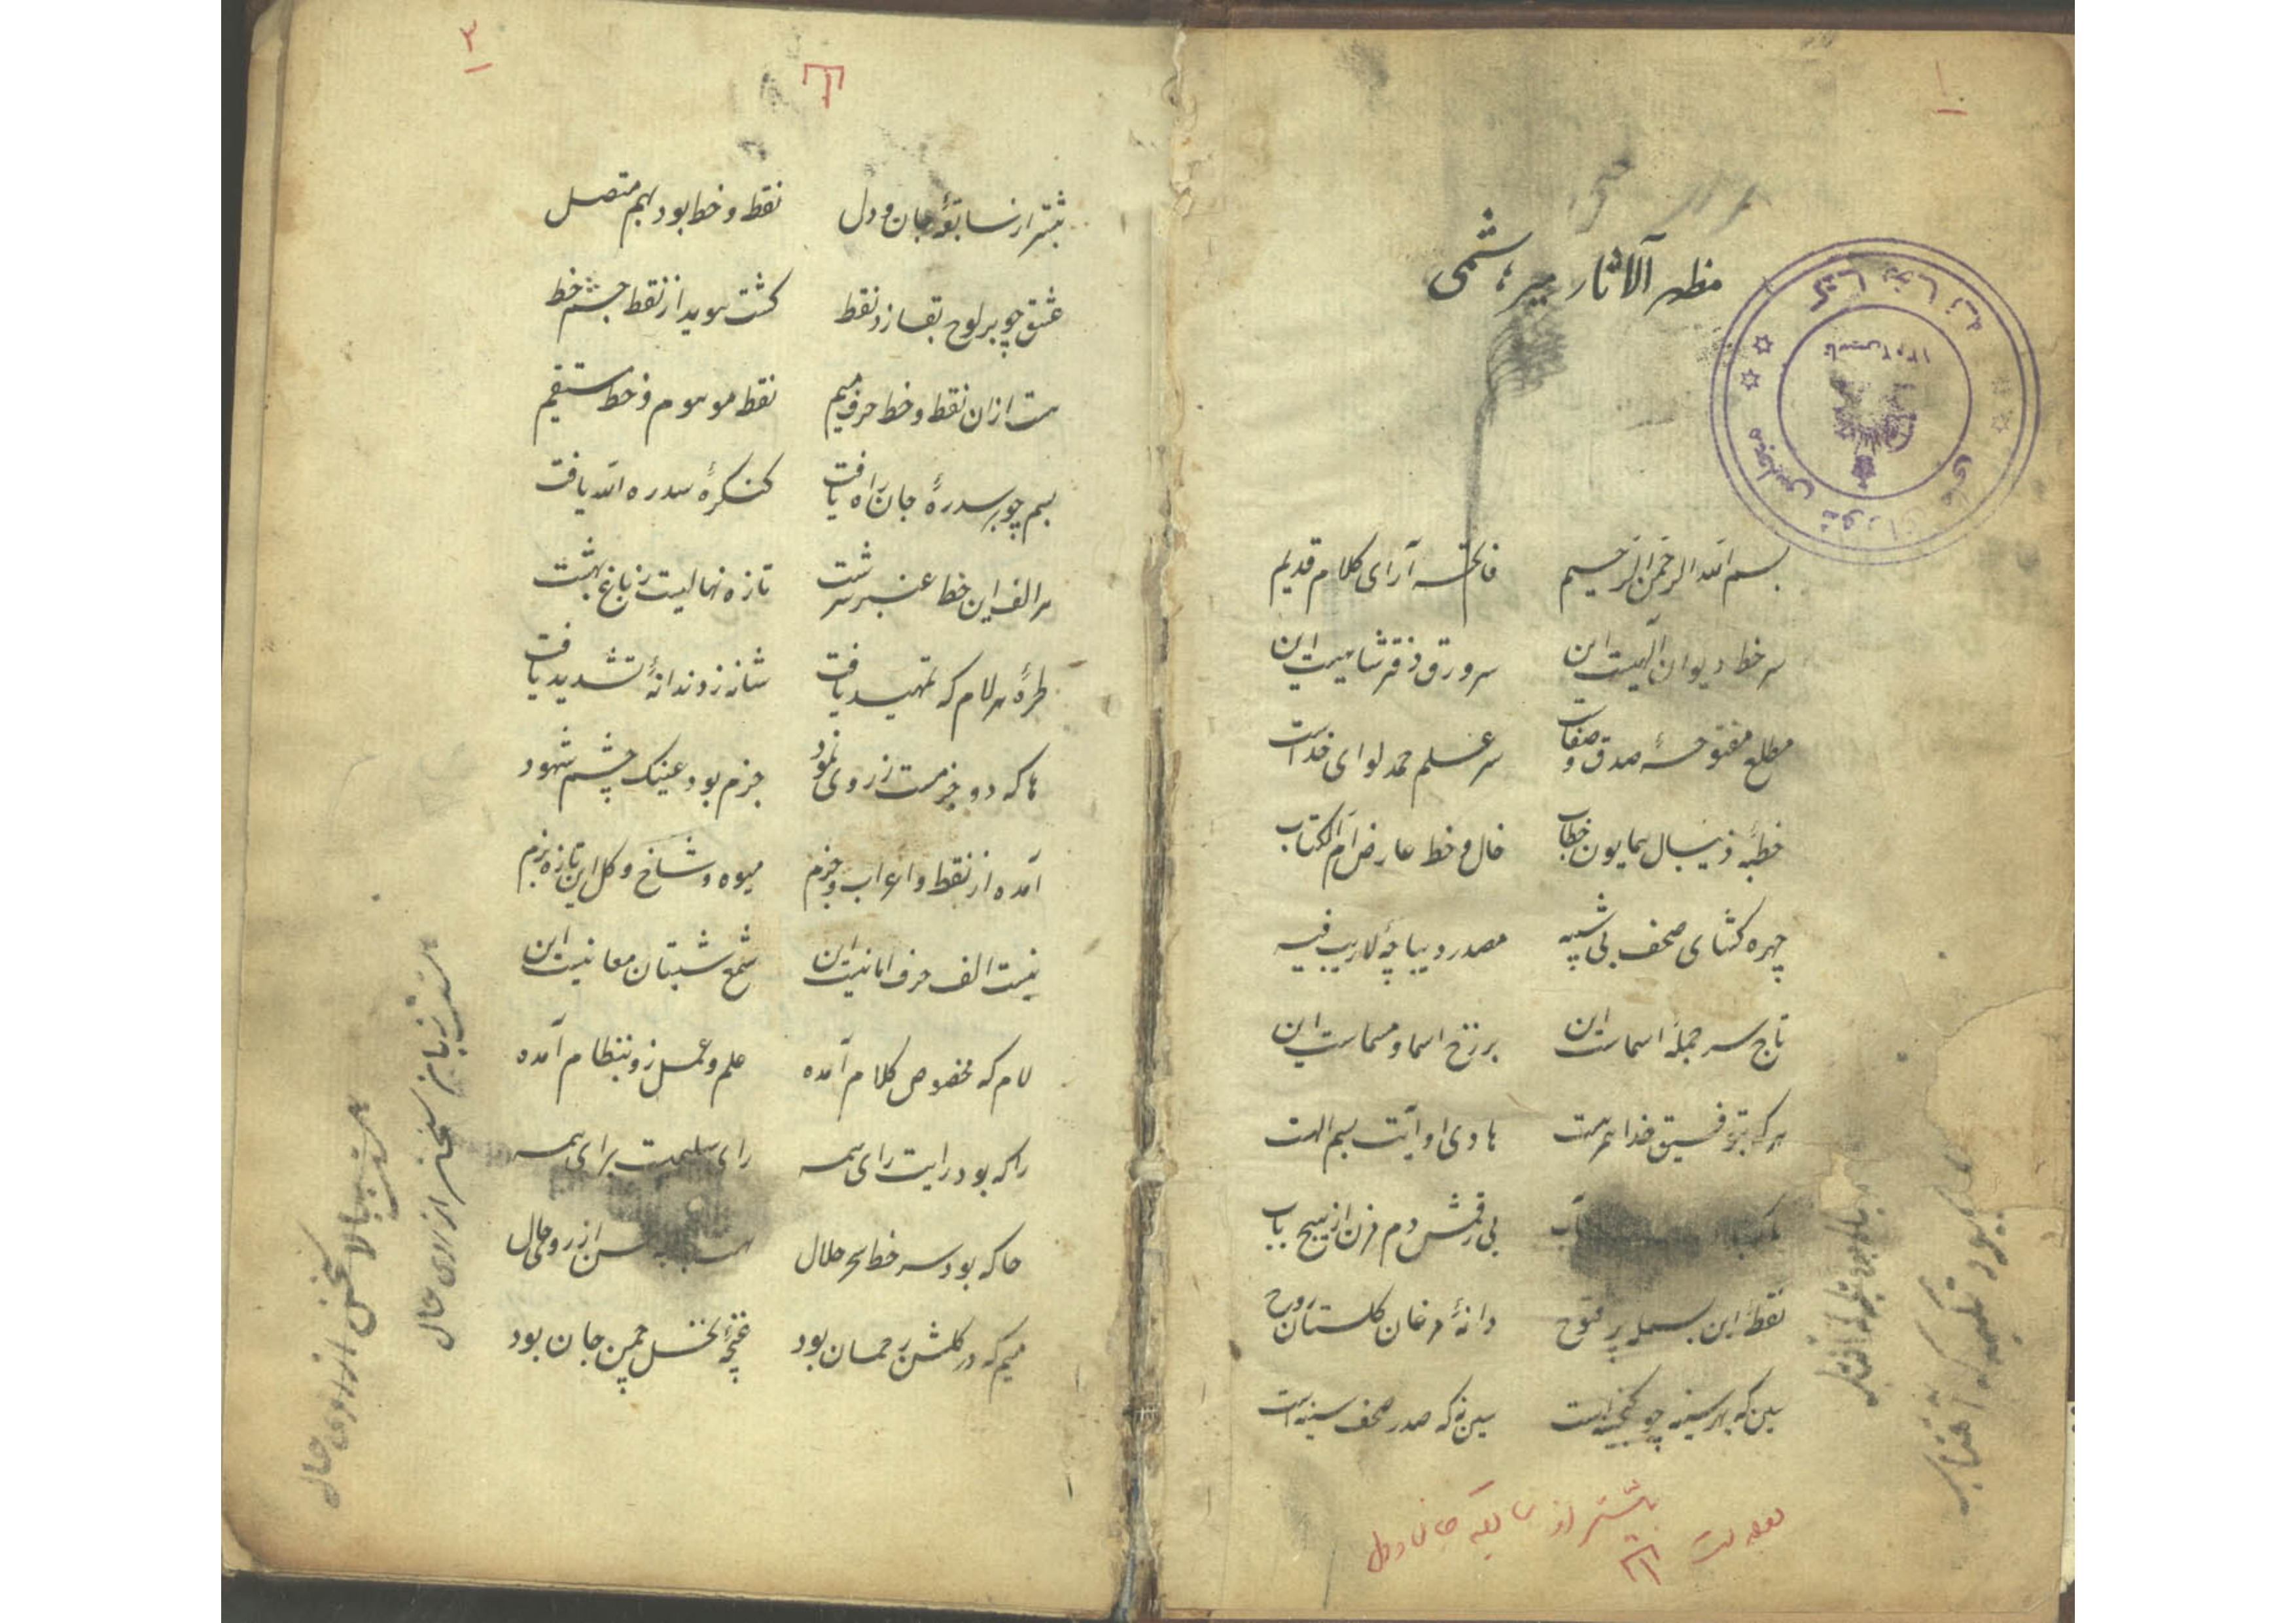 ۱
مظهر الآثار میر هاشمی
کتابخانه مجلس شورای ملی
تاسیس ۱۳۰۲
بسم الله الرحمن الرحیم فاتحه آرای کلام قدیم
سر خط دیوان الهیست این سر ورق دفتر شاهیست این
مطلع مفتوحهٔ صدق و صفات سر علم حمد لوای خداست
خطبهٔ ذیبال همایون خطاب خال و خط عارض ام الکتاب
چهره کشای صحف بی شبیه مصدر دیباچهٔ لاریب فیه
تاج سر جملهٔ اسماست این برزخ اسما و مسماست این
هر که بتوفیق خدا همرهست هادی او آیت بسم اللهست
بی رقمش دم مزن از هیچ باب
نقطهٔ این بسمله پر فتوح دانهٔ مرغان کلستان روح
سین که بهر سینه چو کنجینه است سین نه که صدر صحف سینه است
پیشتر از سابقه جان و دل
۳
پیشتر از سابقهٔ جان و دل نقطه و خط بود بهم متصل
عشق چو بر لوح بقا زد نقط کشت هویدا ز نقط جسم خط
هست ازان نقطه و خط حرف میم نقطه موهوم و خط مستقیم
بسم چو بر سدرهٔ جان راه یافت کنکرهٔ سدره الله یافت
هر الف این خط عنبر سرشت تازه نهالیست ز باغ بهشت
طرهٔ هر لام که تمهید یافت شانه ز دندانهٔ تشدید یافت
ها که دو جزمست ز روی نمود جزم بود عینک چشم شهود
آمده از نقطه و اعراب و جزم میوه و شاخ و کل این تازه بزم
نیست الف حرف امانیست این شمع شبستان معانیست این
لام که مخصوص کلام آمده علم و عمل زو بنظام آمده
را که بود رایت رای همه رای سلیمست برای همه
حا که بود سر خط سحر حلال
میم که در کلشن رحمان بود غنچهٔ نخل چمن جان بود